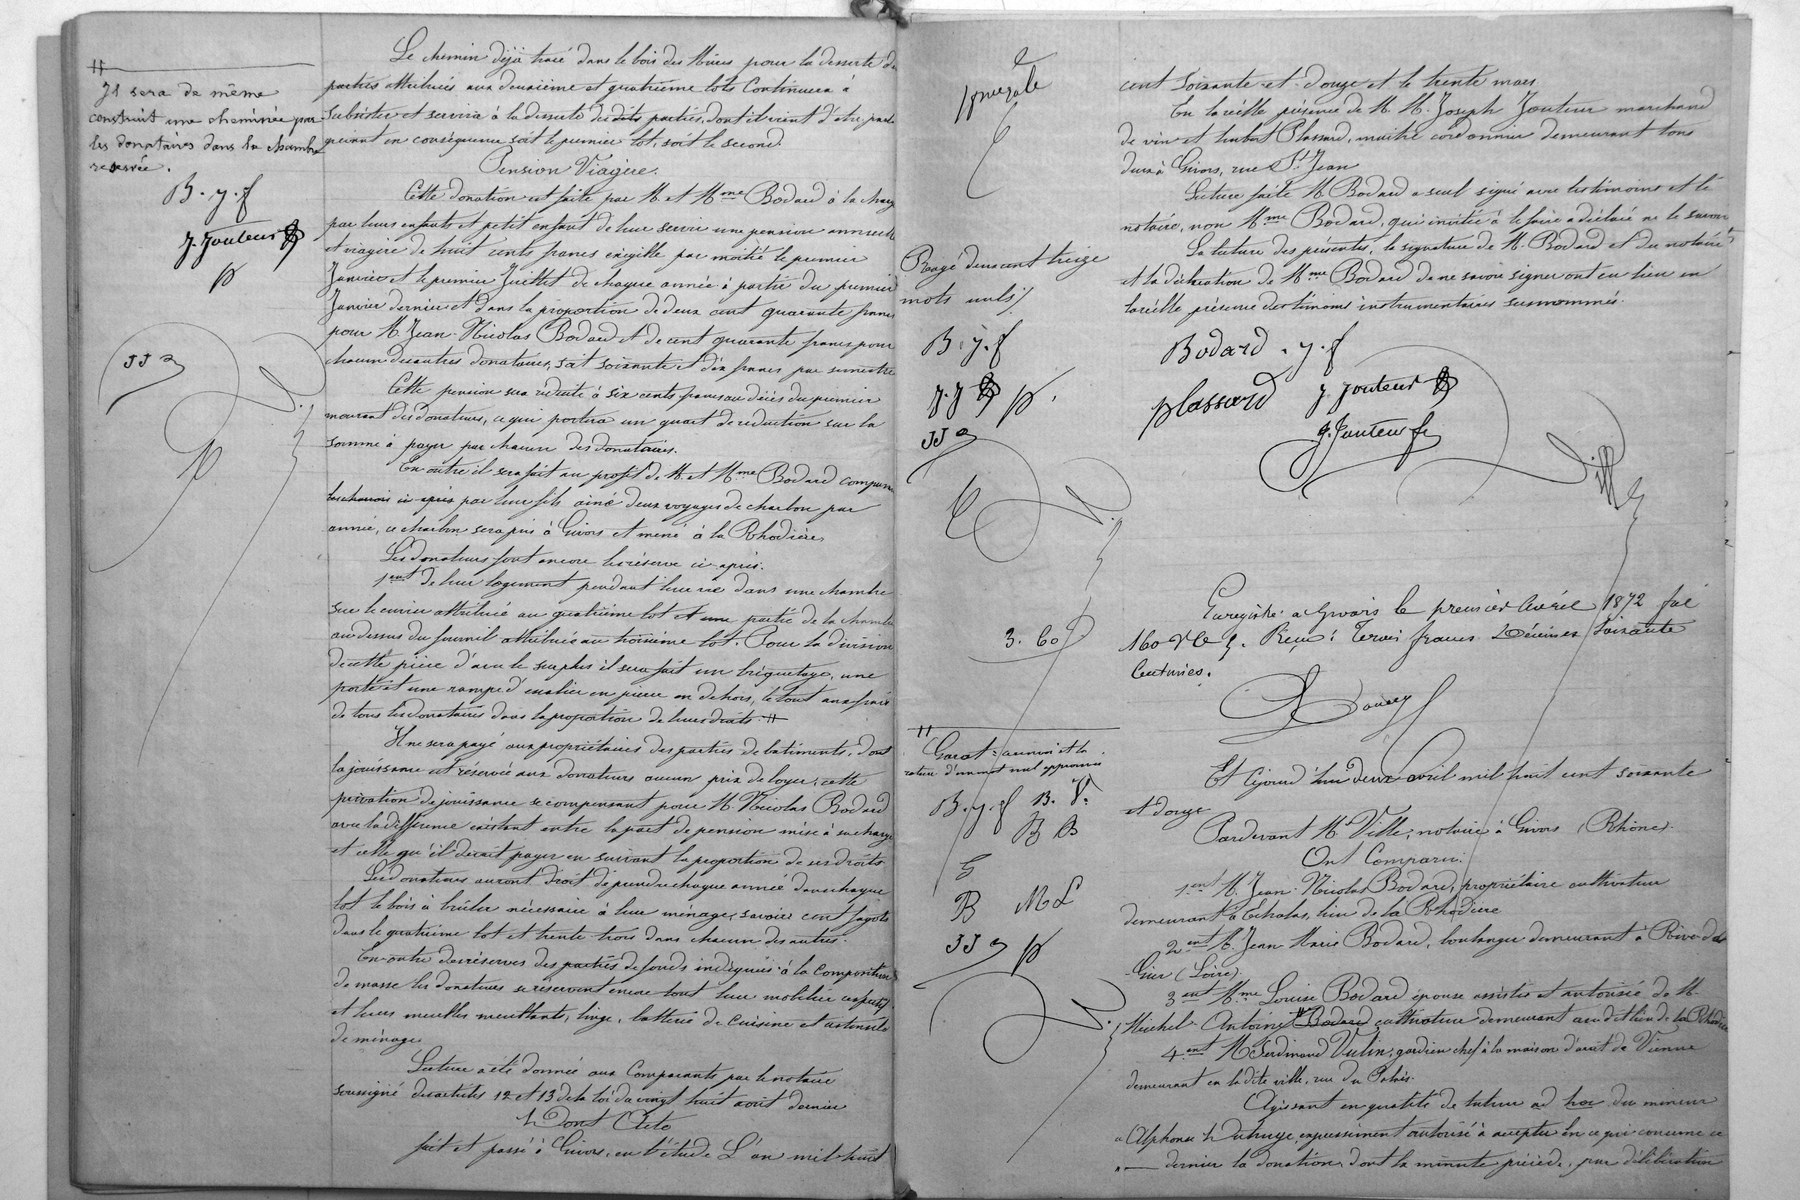 Le chemin déjà tracé dans le bois des Mûres pour la desserte de
parties attribuées aux deuxième et quatrième lots continuera à
subsister et servir à la desserte desdites parties, dont il vient d'être parlé
grevant en conséquence soit le premier lot, soit le second.
Pension Viagère.
Cette donation est faite par M. et Mme Bodard à la charge
par leurs enfants et petit enfant de leur servir une pension annuelle
et viagère de huit cents francs exigible par moitié le premier
Janvier et le premier Juillet de chaque année à partir du premier
Janvier dernier et dans la proportion de deux cent quarante francs
pour M. Jean-Nicolas Bodard et de cent quarante francs pour
chacun des autres donataires, soit soixante et dix francs par semestre
Cette pension sera réduite à six cents francs au décès du premier
mourant des donateurs, ce qui portera un quart de réduction sur la
somme à payer par chacun des donataires.
En outre il sera fait au profit de M. et Mme Bodard
par leur fils ainé deux voyages de charbon par
année, ce charbon sera pris à Givors et mené à la Rhodière
Les donateurs font encore les réserve ci-après.
1ent De leur logement pendant leur vie dans une chambre
sur le cuvier attribué au quatrième lot et une partie de la chambre
au dessus du fournil attribué au troisième lot. Pour la division
de cette pièce d'avec le surplus il sera fait un briquetage, une
porte et une rampe d'escalier en pierre en dehors, le tout aux frais
de tous les donataires dans la proportion de leurs droits. #
Il ne sera payé aux propriétaires des parties de batiments, dont
la jouissance est réservée aux donateurs aucun prix de loyer; cette
privation de jouissance se compensant pour M. Nicolas Bodard
avec la différence existant entre la part de pension mise à sa charge
et celle qu'il devait payer en suivant la proportion de ses droits
Les donateurs auront droit de prendre chaque année dans chaque
lot le bois à brûler nécessaire à leur ménage, savoir cent fagots
dans le quatrième lot et trente trois dans chacun des autres.
En outre des réserves des parties de fonds indiquées à la composition
de masse les donateurs se réservent encore tout leur mobilier
et leurs meubles meublants, linge, batterie de cuisine et ustensiles
de ménage
Lecture a été donnée aux comparants par le notaire
soussigné des articles 12 et 13 de la loi du vingt huit août dernier
Dont Acte
fait et passé à Givors, en l'étude L'an mil huit
#
Il sera de même
construit une cheminée par
les donataires dans la chambre
réservée.
B. y. f
J. Jouteur
p
JJ
cent soixante-et-douze et le trente mars
En la réelle présence de M. M. Joseph Jouteur marchand
de vin et Plassard, maître cordonnier demeurant tous
deux à Givors, rue St Jean
Lecture faite M. Bodard a seul signé avec les témoins et le
notaire, non Mme Bodard, qui invitée à le faire a déclaré ne le savoir
La lecture des présentes, la signature de M. Bodard et du notaire
et la déclaration de Mme Bodard de ne savoir signer ont eu lieu en
la réelle présence des témoins instrumentaires susnommés.
Bodard . y. f
Plassard J. Jouteur
J. Jouteur
Rayé deux cent treize
mots nuls
B. y. f
J. J p.
JJ
Enregistré à Givors le premier Avril 1872 fol
160. Reçu: Trois francs Décimes Soixante
Centimes.
3. 60
Et cejourd'hui deux avril mil huit cent soixante
et douze
Pardevant Me Ville, notaire à Givors (Rhône).
Ont Comparu:
1ent M. Jean-Nicolas Bodard, propriétaire cultivateur
demeurant à Echalas, lieu de la Rhodière
2ent M. Jean Marie Bodard, boulanger demeurant à Rive-de
Gier (Loire)
3ent Mme Louise Bodard épouse assistée et autorisée de M.
Michel Antoine # Bodard cultivateur demeurant au dit lieu de la Rhodière
4ent M Ferdinand Vulin, gardien chef à la maison d'arrêt de Vienne
demeurant en la dite ville, rue du Palais.
Agissant en qualité de tuteur ad hoc du mineur
Alphonse expressément autorisé à accepter en ce qui concerne ce
dernier la donation, dont la minute précède, par délibération
#
Garat: au renvoi et la
rature d'un mot nul approuvés
B. y. f B. V.
B B
G
B M L
JJ p